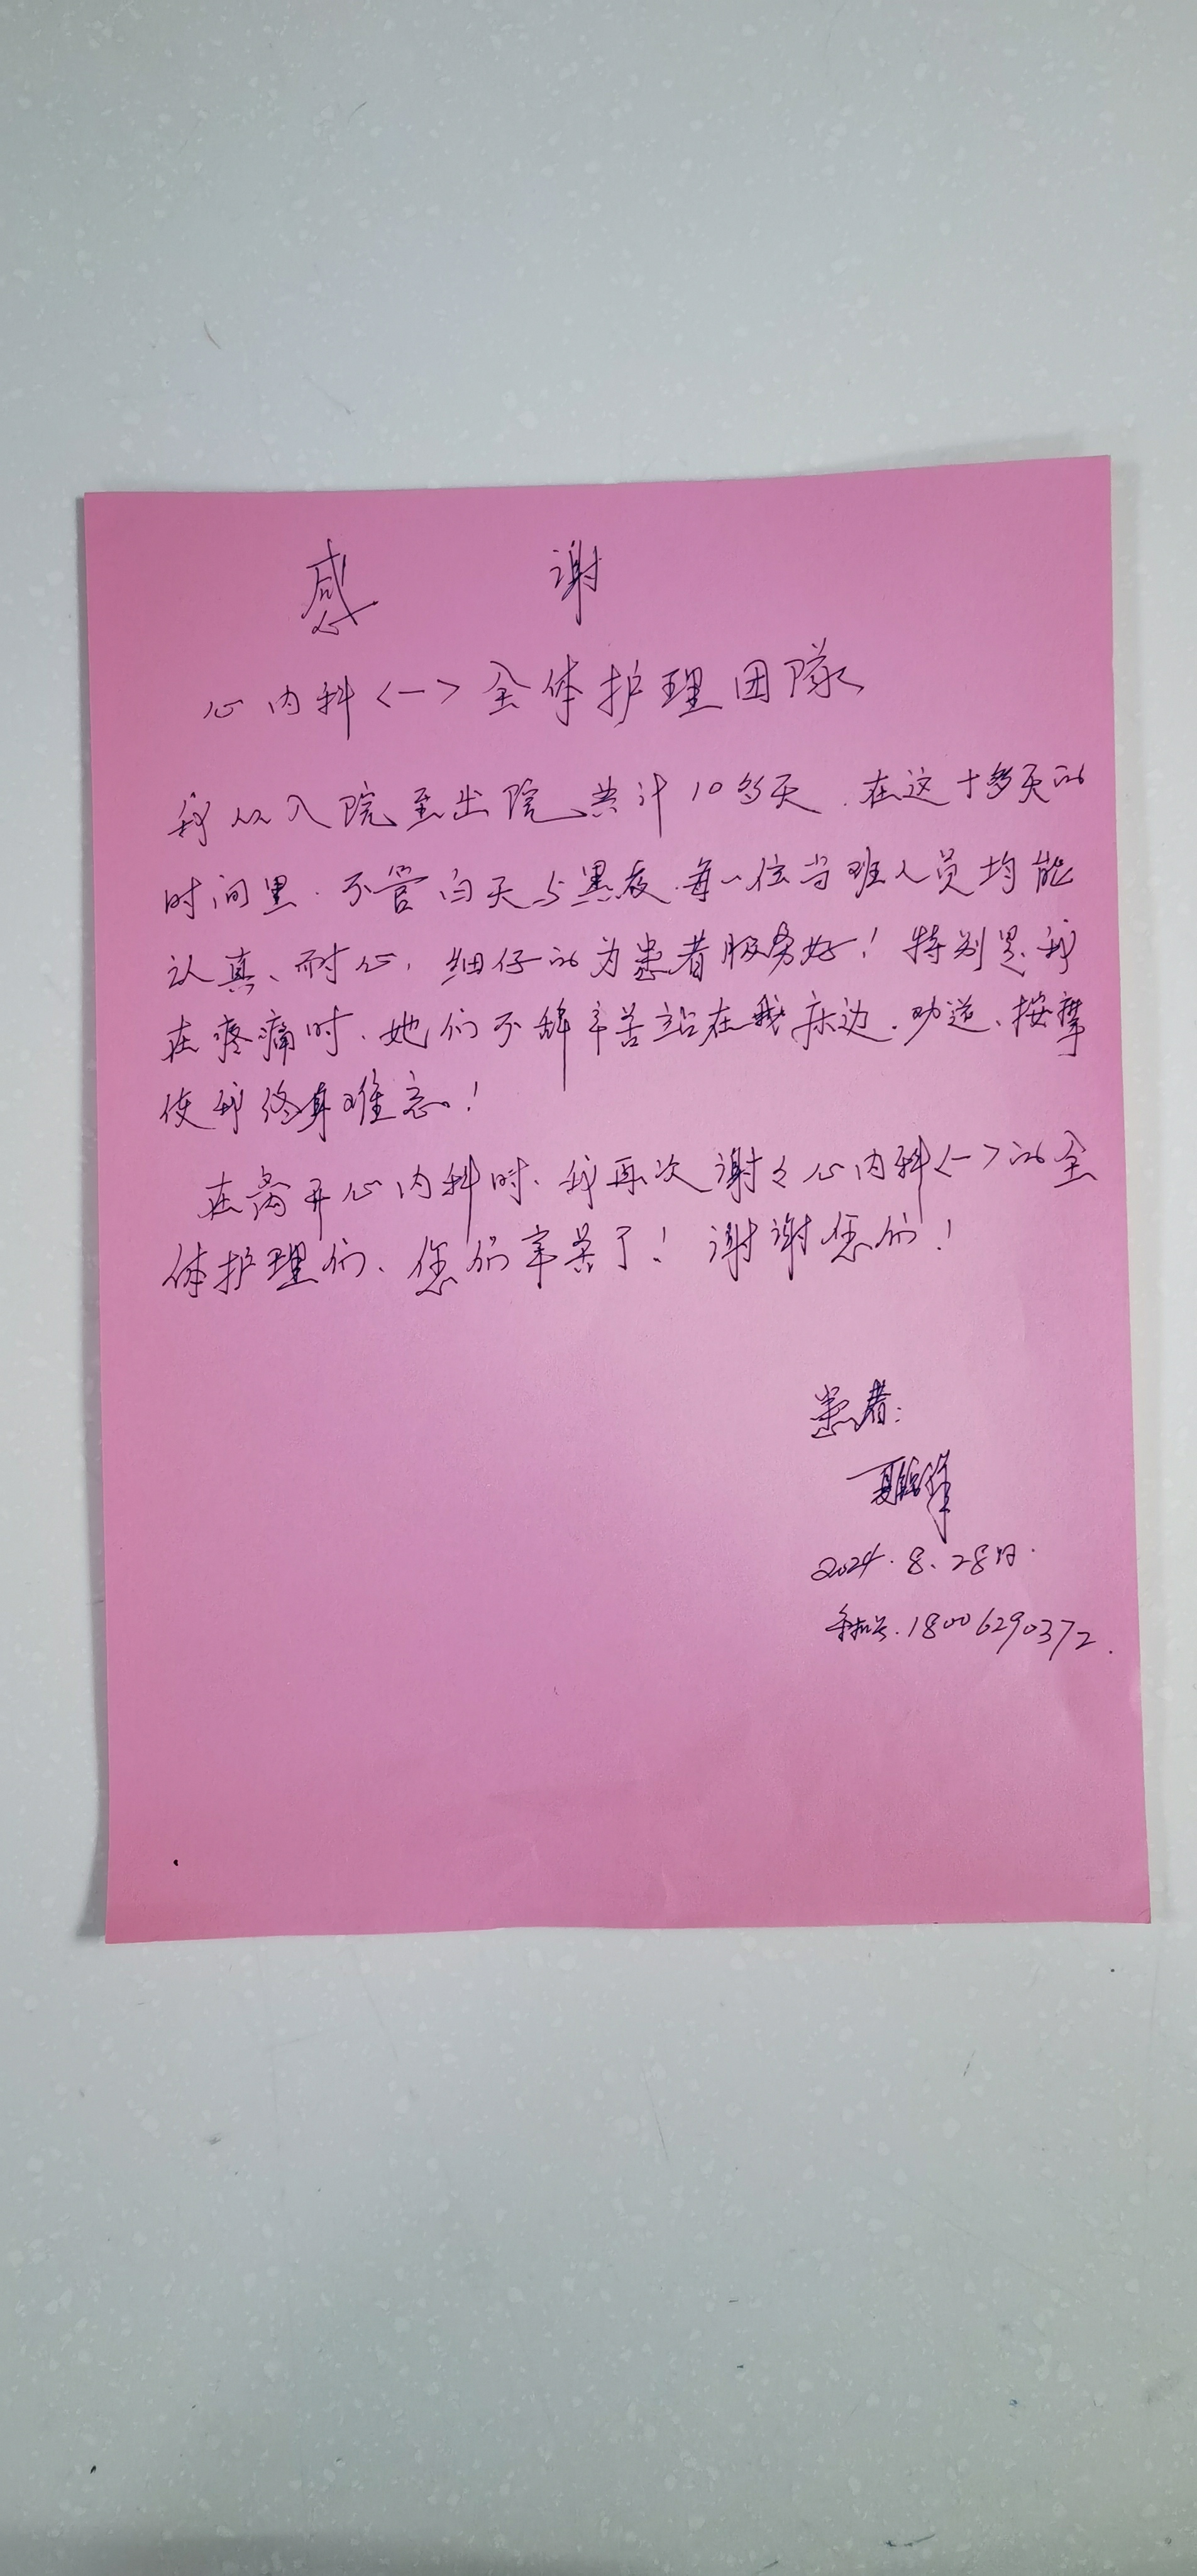 感 谢
心内科<一>全体护理团隊
我从入院至出院共计10多天.在这十多天的
时间里.不管白天与黑夜.每一位当班人员均能
认真、耐心,细仔的为患者服务好!特别是我
在疼痛时、她们不辞辛苦站在我床边.劝道、按摩
使我终身难忘!
在离开心内科时、我再次谢々心内科<一>的全
体护理们、您们辛苦了!谢谢您们!
患者:
夏
2024.8、28日.
手机号.18006290372.